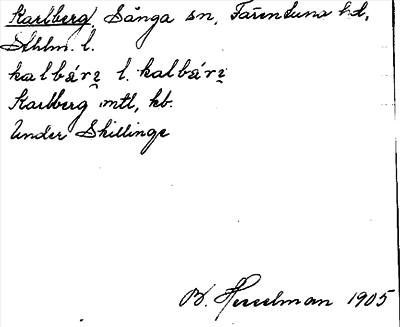 Karlberg, Sånga sn, Färentuna hd,
Sthlm. l.
kalbárʒ l. kalbárʒ
Karlberg mtl, kb.
Under Skillinge
B. Hesselman 1905